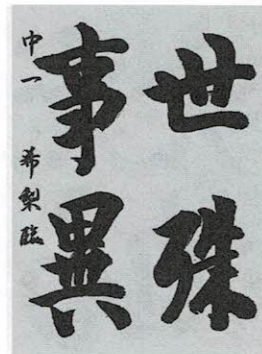 世殊
事異
中一　希梨臨